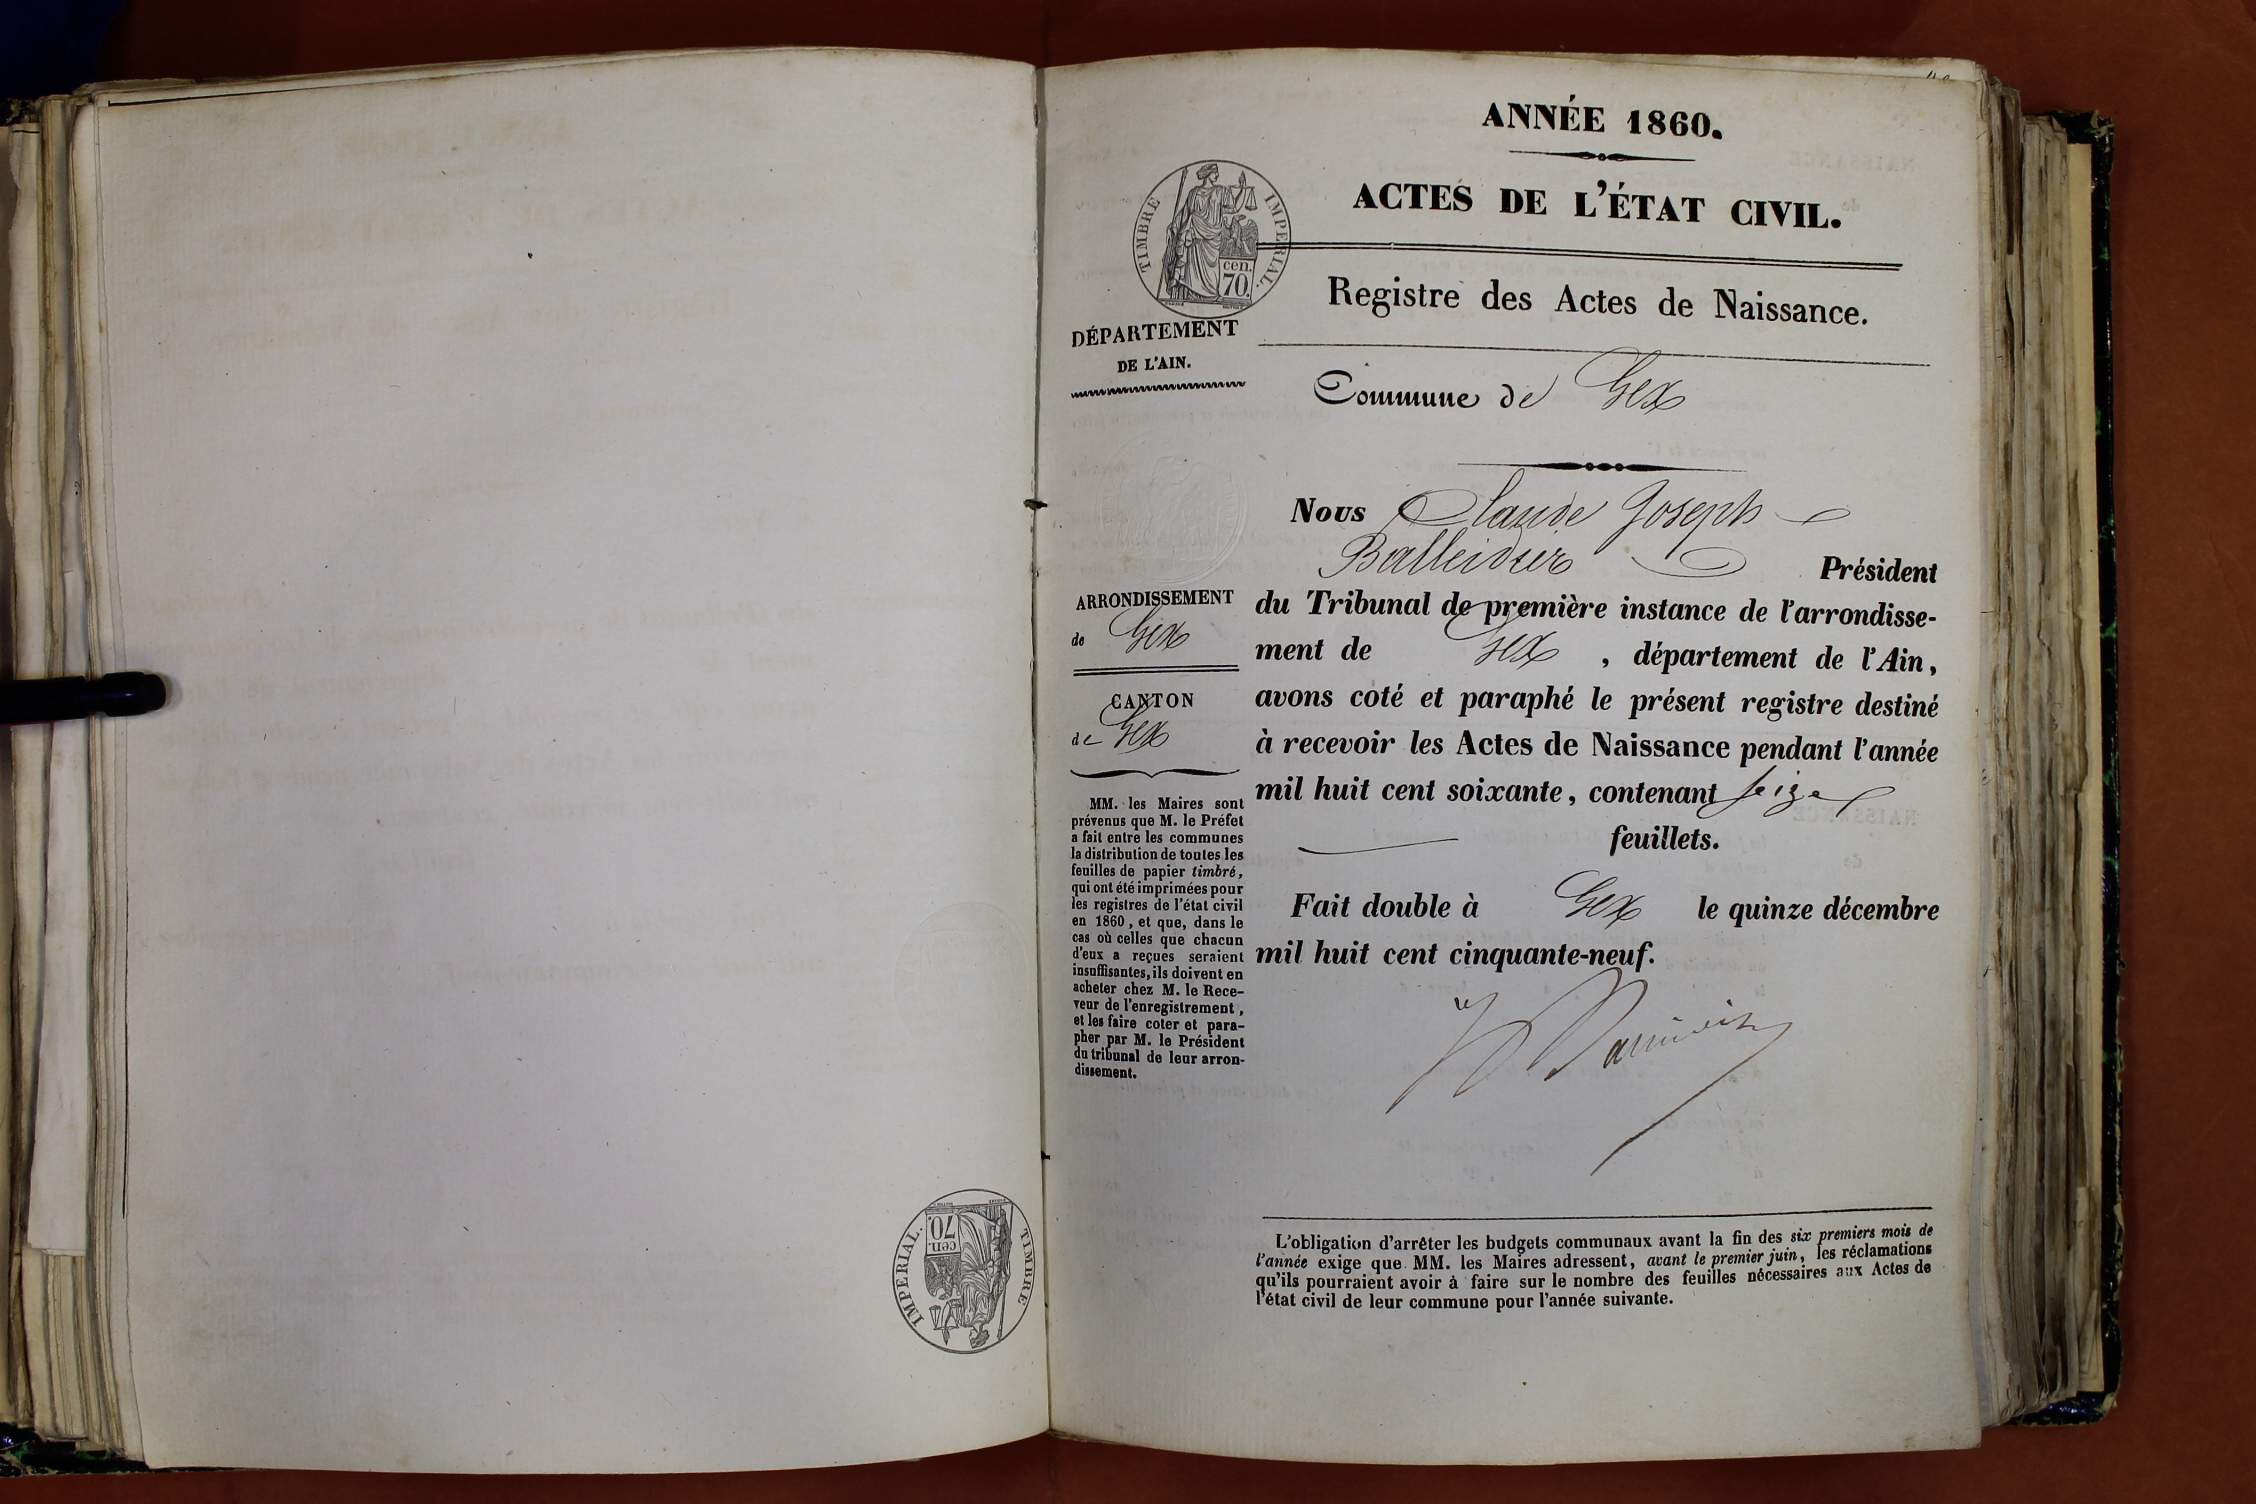 ANNÉE 1860.
ACTES DE L'ÉTAT CIVIL.
TIMBRE IMPERIAL.
cen.
70.
Registre des Actes de Naissance.
DÉPARTEMENT
DE L'AIN.
Commune de Gex
Nous Claude Joseph
Balleidier Président
du Tribunal de première instance de l'arrondisse-
ment de Gex, département de l'Ain,
avons coté et paraphé le présent registre destiné
à recevoir les Actes de Naissance pendant l'année
mil huit cent soixante, contenant seize
feuillets.
Fait double à Gex le quinze décembre
mil huit cent cinquante-neuf.
ARRONDISSEMENT
de Gex
CANTON
de Gex
MM. les Maires sont
prévenus que M. le Préfet
a fait entre les communes
la distribution de toutes les
feuilles de papier timbré,
qui ont été imprimées pour
les registres de l'état civil
en 1860, et que, dans le
cas où celles que chacun
d'eux a reçues seraient
insuffisantes, ils doivent en
acheter chez M. le Rece-
veur de l'enregistrement,
et les faire coter et para-
pher par M. le Président
du tribunal de leur arron-
dissement.
L'obligation d'arrêter les budgets communaux avant la fin des six premiers mois de
l'année exige que MM. les Maires adressent, avant le premier juin, les réclamations
qu'ils pourraient avoir à faire sur le nombre des feuilles nécessaires aux Actes de
l'état civil de leur commune pour l'année suivante.
TIMBRE IMPERIAL.
cen.
70.